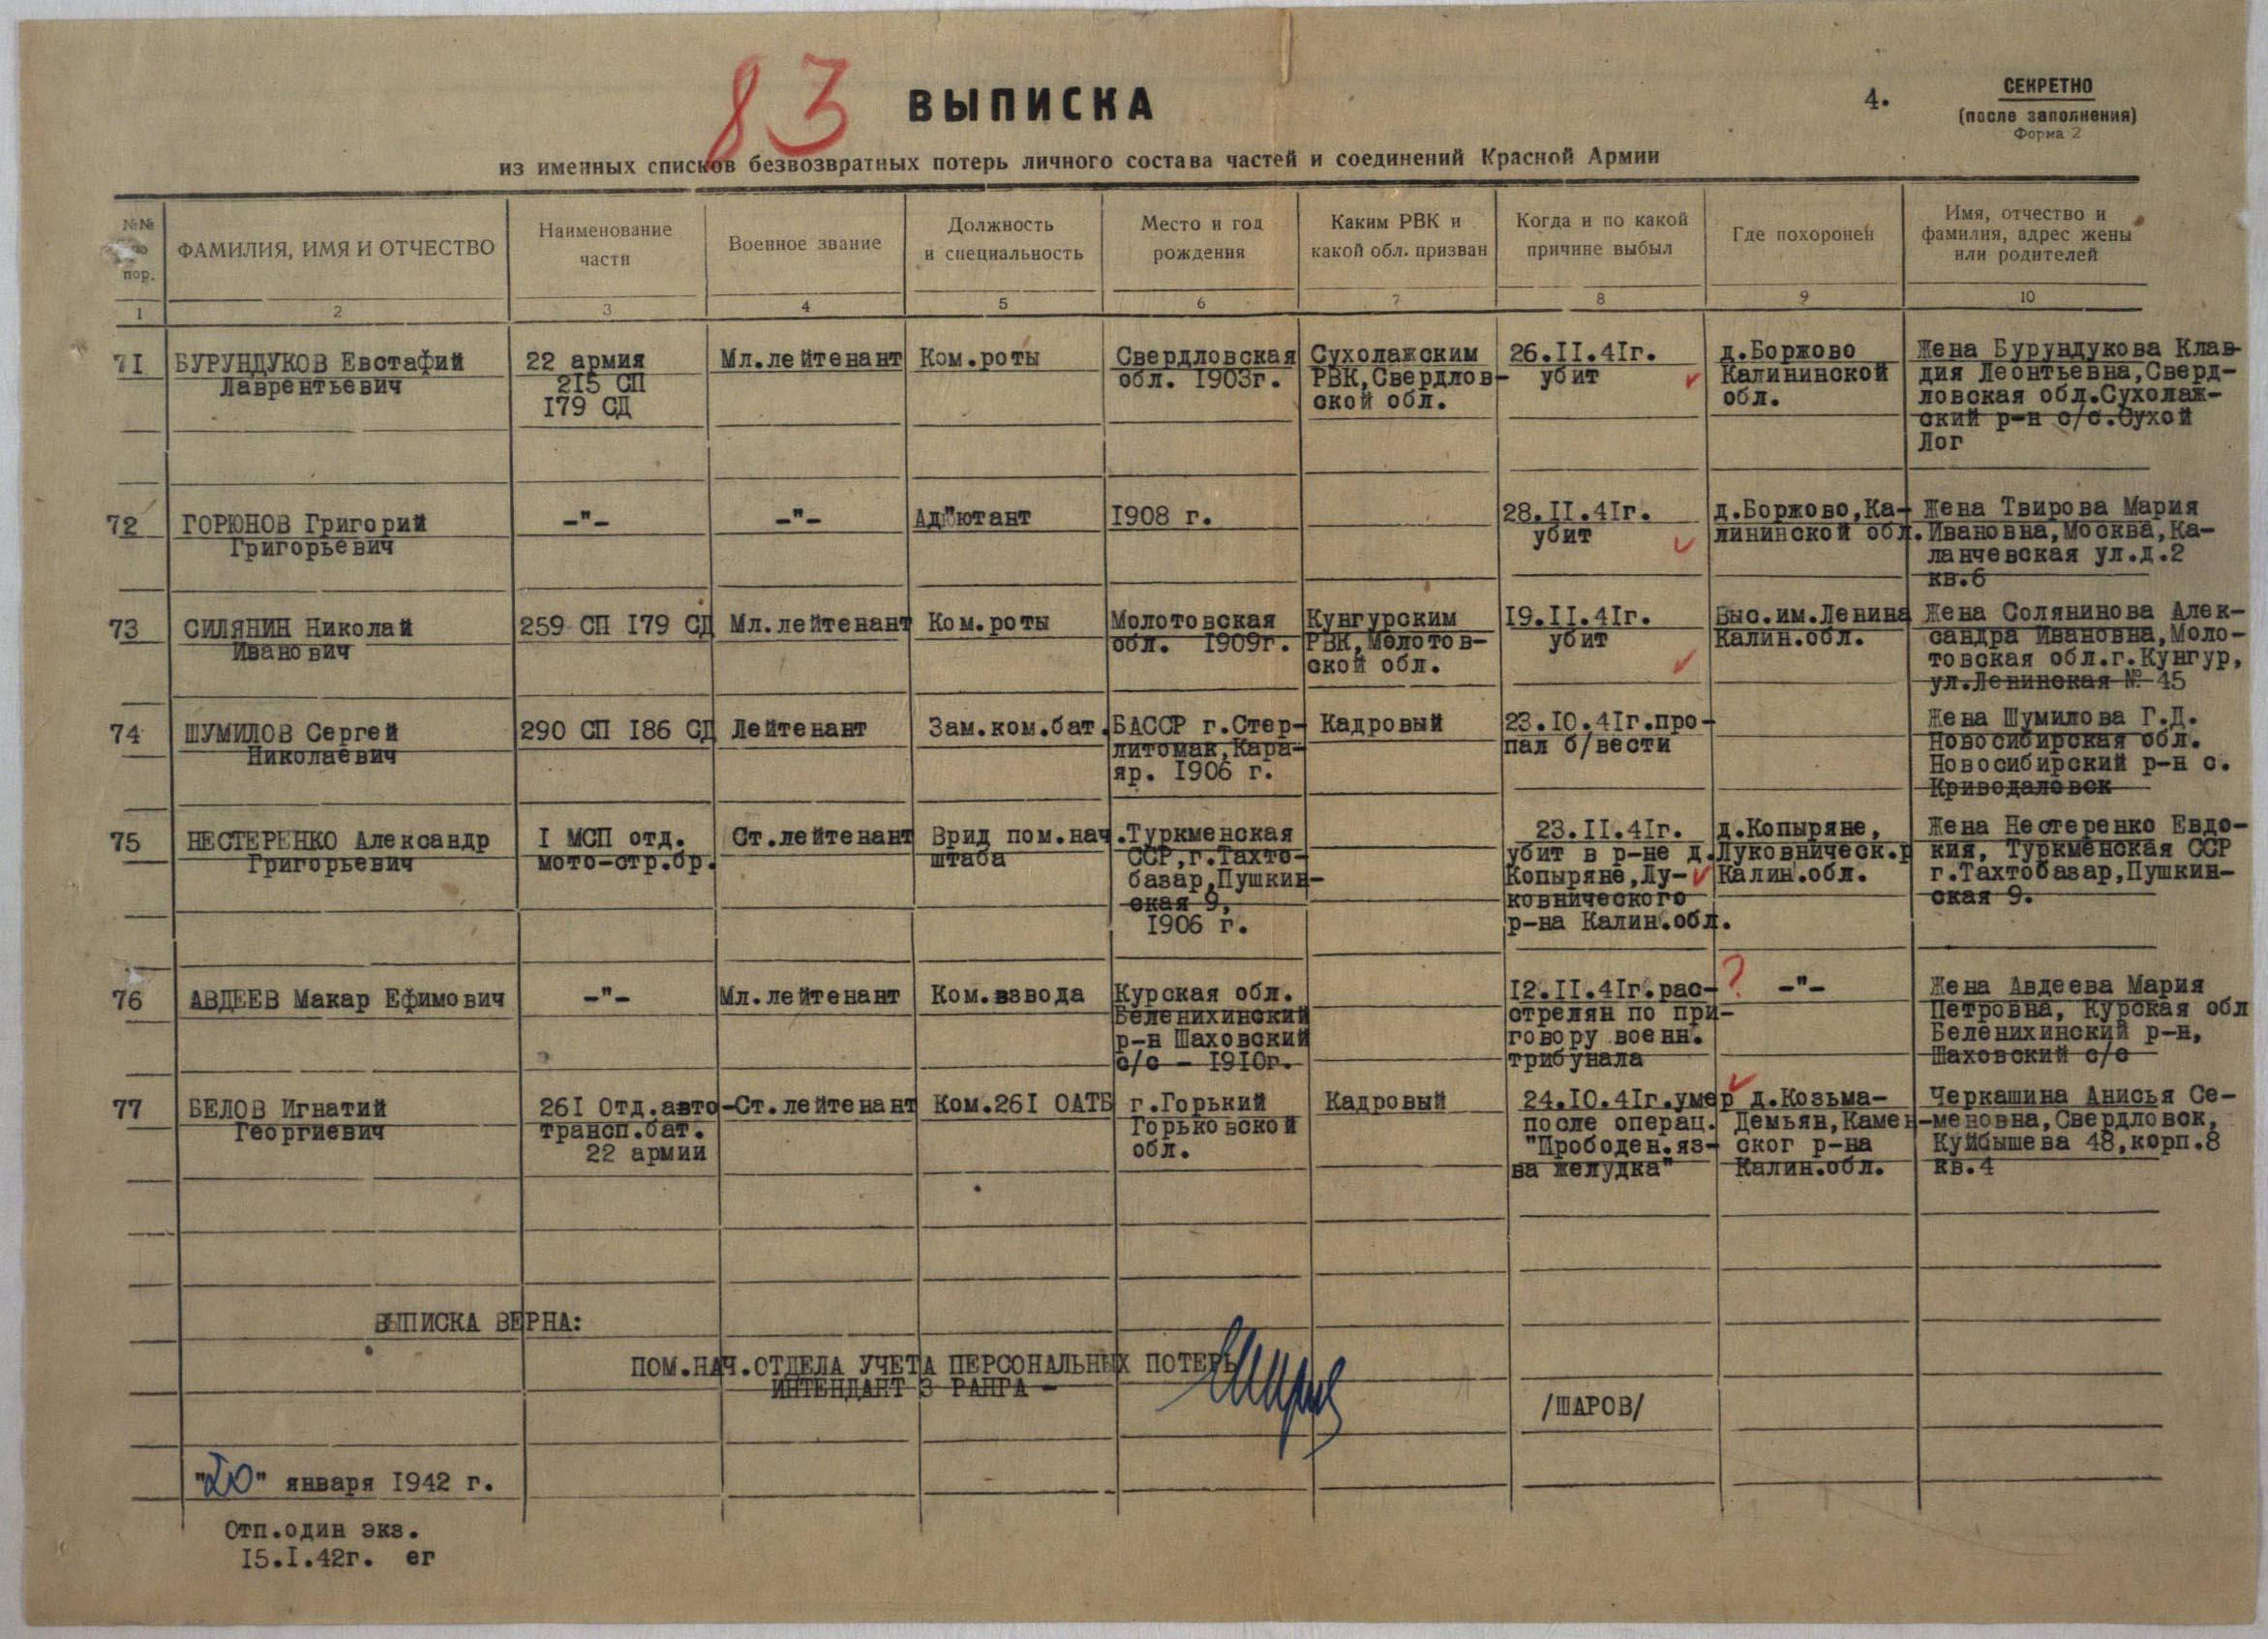 83
ВЫПИСКА
4.
СЕКРЕТНО
(после заполнения)
Форма 2
из именных списков безвозвратных потерь личного состава частей и соединений Красной Армии
№№
по
пор.
ФАМИЛИЯ, ИМЯ И ОТЧЕСТВО
Наименование
части
Военное звание
Должность
и специальность
Место и год
рождения
Каким РВК и
какой обл. призван
Когда и по какой
причине выбыл
Где похоронен
Имя, отчество и
фамилия, адрес жены
или родителей
1 2 3 4 5 6 7 8 9 10
71
БУРУНДУКОВ Евстафий
Лаврентьевич
22 армия
215 СП
179 СД
Мл.лейтенант
Ком.роты
Свердловская
обл. 1903г.
Сухоложским
РВК,Свердлов-
ской обл.
26.II.41г.
убит
д.Боржово
Калининской
обл.
Жена Бурундукова Клав-
дия Леонтьевна,Сверд-
ловская обл.Сухолаж-
ский р-н с/с.Сухой
Лог
72
ГОРЮНОВ Григорий
Григорьевич
-"-
-"-
Ад"ютант
1908 г.
28.II.41г.
убит
д.Боржово,Ка-
лининской обл.
Жена Твирова Мария
Ивановна,Москва,Ка-
ланчевская ул.д.2
кв.6
73
СИЛЯНИН Николай
Иванович
259 СП 179 СД
Мл.лейтенант
Ком.роты
Молотовская
обл. 1909г.
Кунгурским
РВК,Молотов-
ской обл.
19.II.41г.
убит
Выс.им.Ленина
Калин.обл.
Жена Солянинова Алек-
сандра Ивановна,Моло-
товская обл.г.Кунгур,
ул.Ленинская № 45
74
ШУМИЛОВ Сергей
Николаевич
290 СП 186 СД
Лейтенант
Зам.ком.бат.
БАССР г.Стер-
литомак,Кара-
яр. 1906 г.
Кадровый
23.10.41г.про-
пал б/вести
Жена Шумилова Г.Д.
Новосибирская обл.
Новосибирский р-н с.
Криводаловск
75
НЕСТЕРЕНКО Александр
Григорьевич
I МСП отд.
мото-стр.бр.
Ст.лейтенант
Врид пом.нач.
штаба
Туркменская
ССР,г.Тахто-
базар,Пушкин-
ская 9,
1906 г.
23.II.41г.
убит в р-не д.
Копыряне,Лу-
ковнического
р-на Калин.обл.
д.Копыряне,
Луковническ.р
Калин.обл.
Жена Нестеренко Евдо-
кия, Туркменская ССР
г.Тахтобазар,Пушкин-
ская 9.
76
АВДЕЕВ Макар Ефимович
-"-
Мл.лейтенант
Ком.взвода
Курская обл.
Беленихинский
р-н Шаховский
с/с - 1910г.
12.II.41г.рас-
стрелян по при-
говору военн.
трибунала
?
-"-
Жена Авдеева Мария
Петровна, Курская обл
Беленихинский р-н,
Шаховский с/с
77
БЕЛОВ Игнатий
Георгиевич
261 Отд.авто-
трансп.бат.
22 армии
Ст.лейтенант
Ком.261 ОАТБ
г.Горький
Горьковской
обл.
Кадровый
24.10.41г.умер
после операц.
"Прободен.яз-
ва желудка"
д.Козьма-
Демьян,Камен-
ског р-на
Калин.обл.
Черкашина Анисья Се-
меновна,Свердловск,
Куйбышева 48,корп.8
кв.4
ВЫПИСКА ВЕРНА:
ПОМ.НАЧ.ОТДЕЛА УЧЕТА ПЕРСОНАЛЬНЫХ ПОТЕРЬ
ИНТЕНДАНТ 3 РАНГА -
/ШАРОВ/
"20" января 1942 г.
Отп.один экз.
15.I.42г. ег